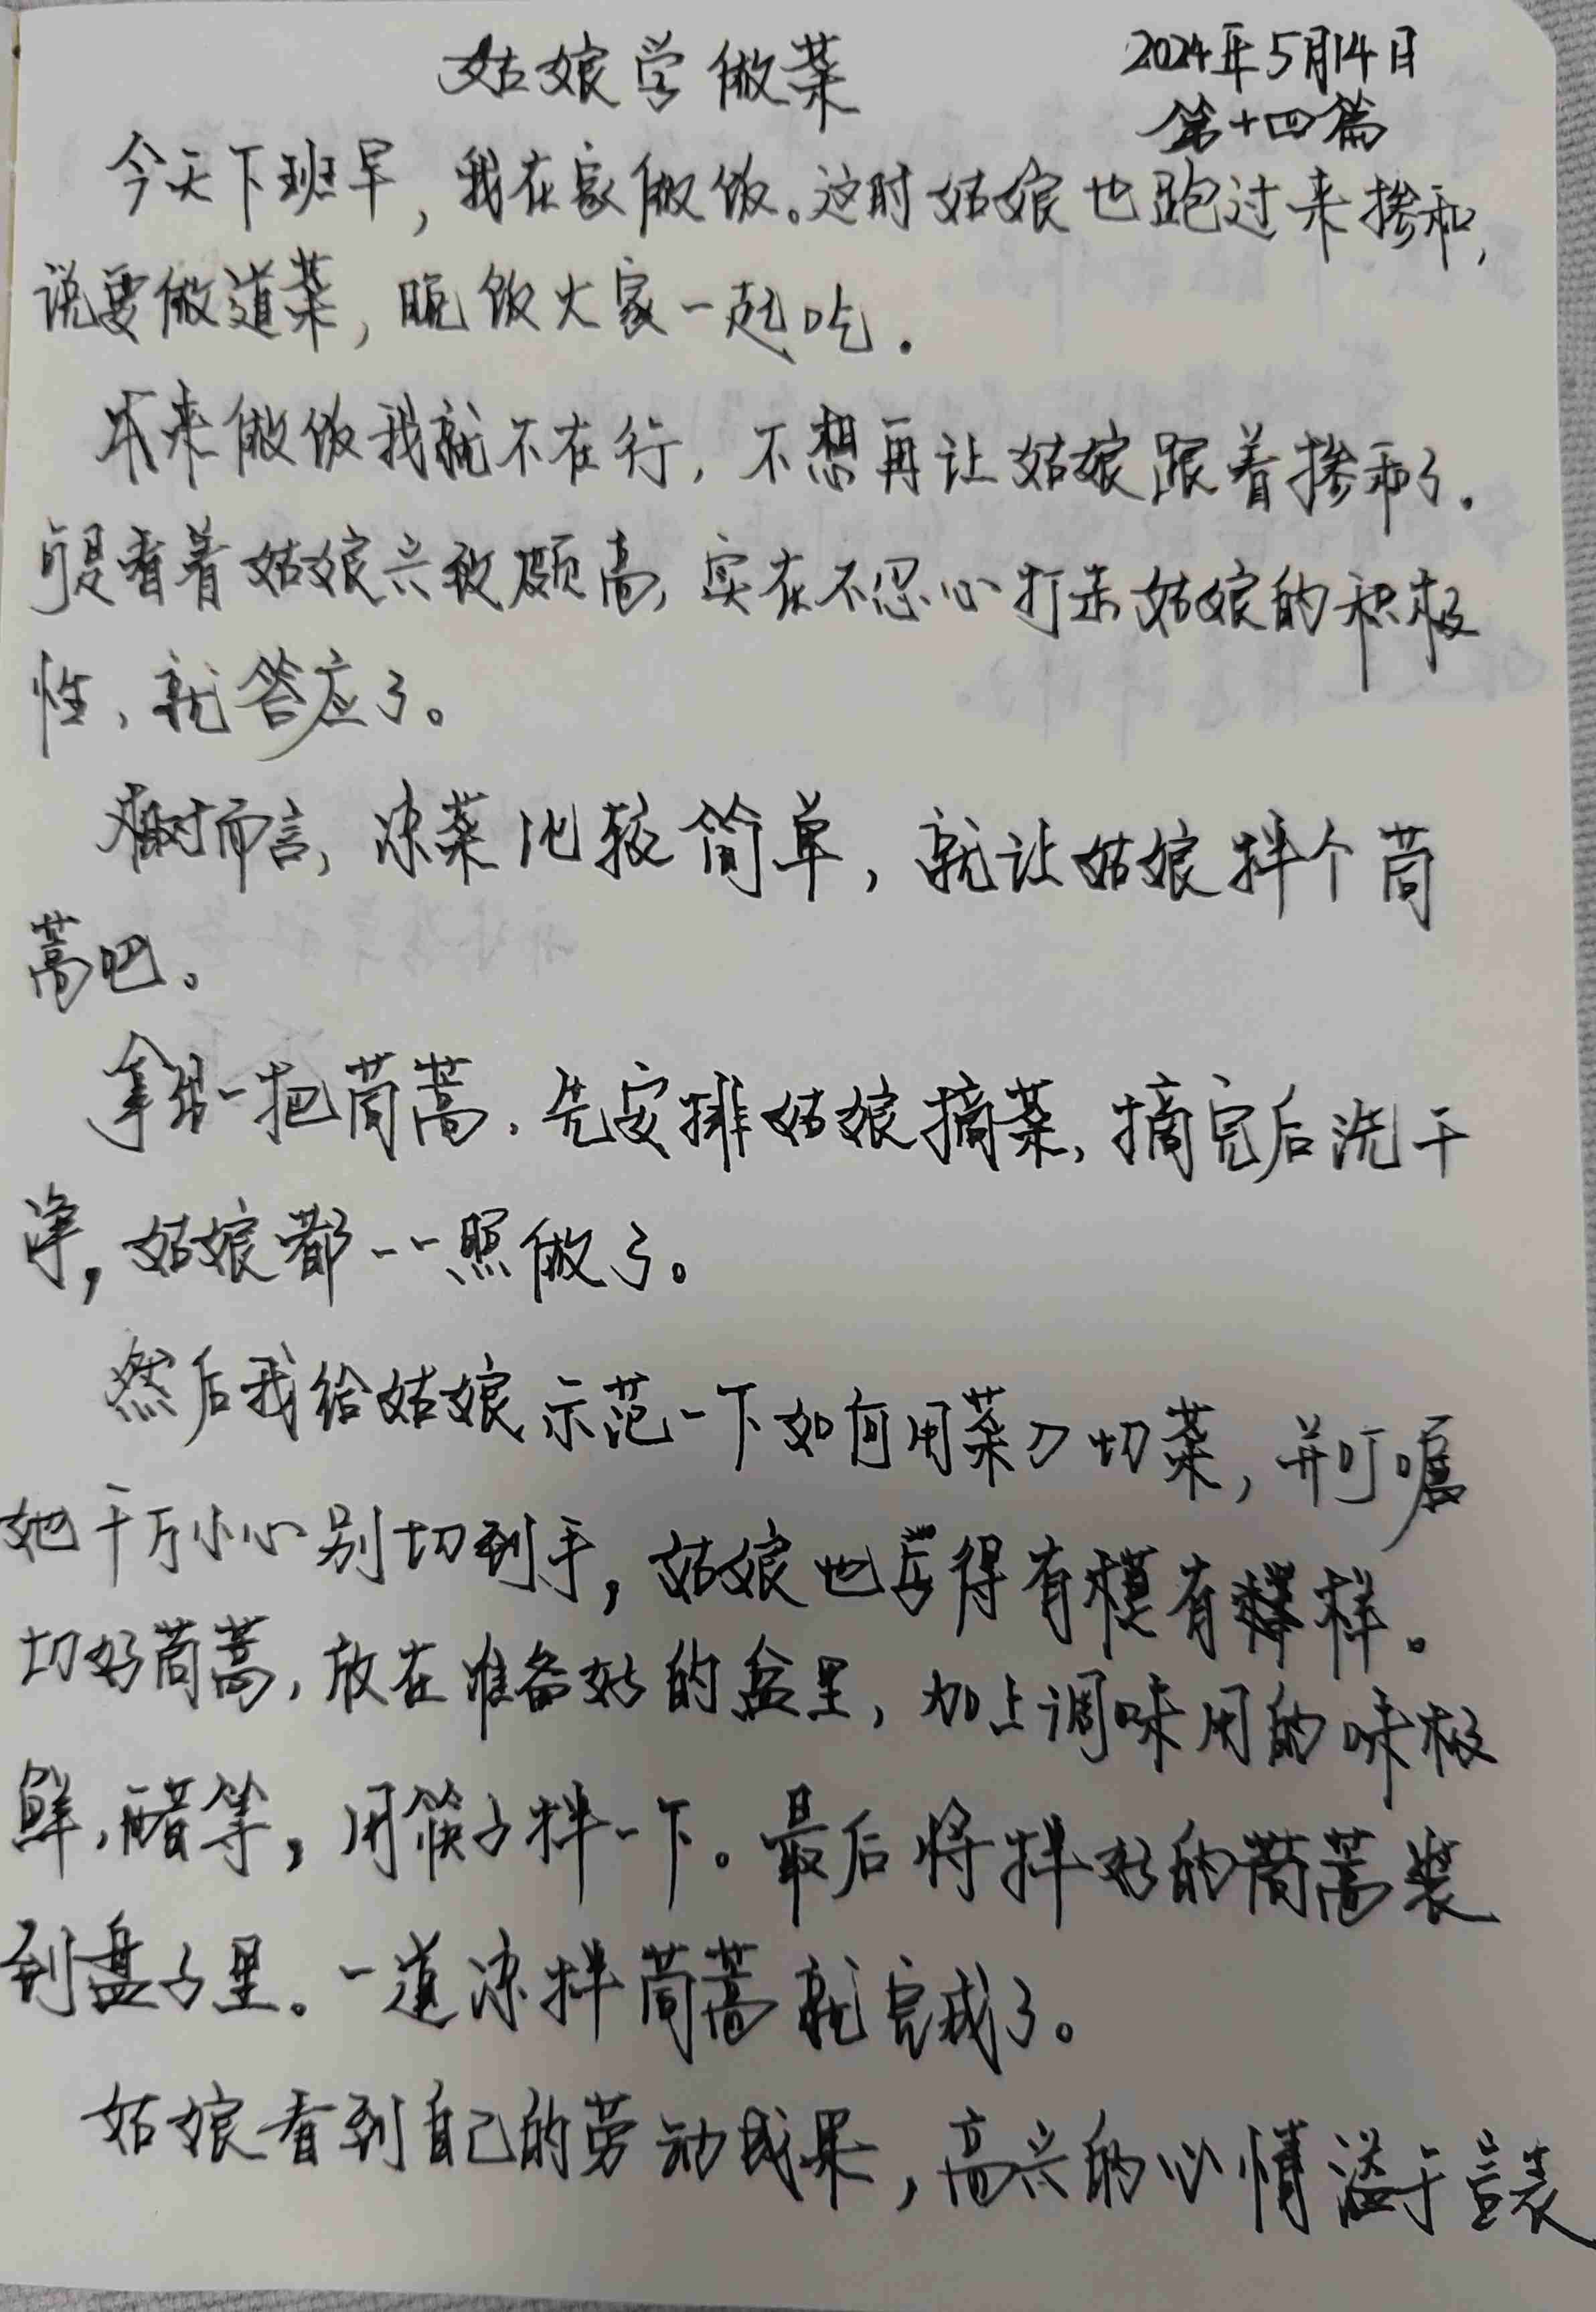 姑娘学做菜
2024年5月14日
第十四篇
今天下班早，我在家做饭。这时姑娘也跑过来掺和，
说要做道菜，晚饭大家一起吃.
本来做饭我就不在行，不想再让姑娘跟着掺和了.
可是看着姑娘兴致颇高，实在不忍心打击姑娘的积极
性，就答应了。
相对而言，凉菜比较简单，就让姑娘拌个茼
蒿吧。
拿出一把茼蒿.先安排姑娘摘菜，摘完后洗干
净，姑娘都一一照做了。
然后我给姑娘示范一下如何用菜刀切菜，并叮嘱
她千万小心别切到手，姑娘也学得有模有样。
切好茼蒿，放在准备好的盆里，加上调味用的味极
鲜，醋等，用筷子拌一下。最后将拌好的茼蒿装
到盘子里。一道凉拌茼蒿就完成了。
姑娘看到自己的劳动成果，高兴的心情溢于言表